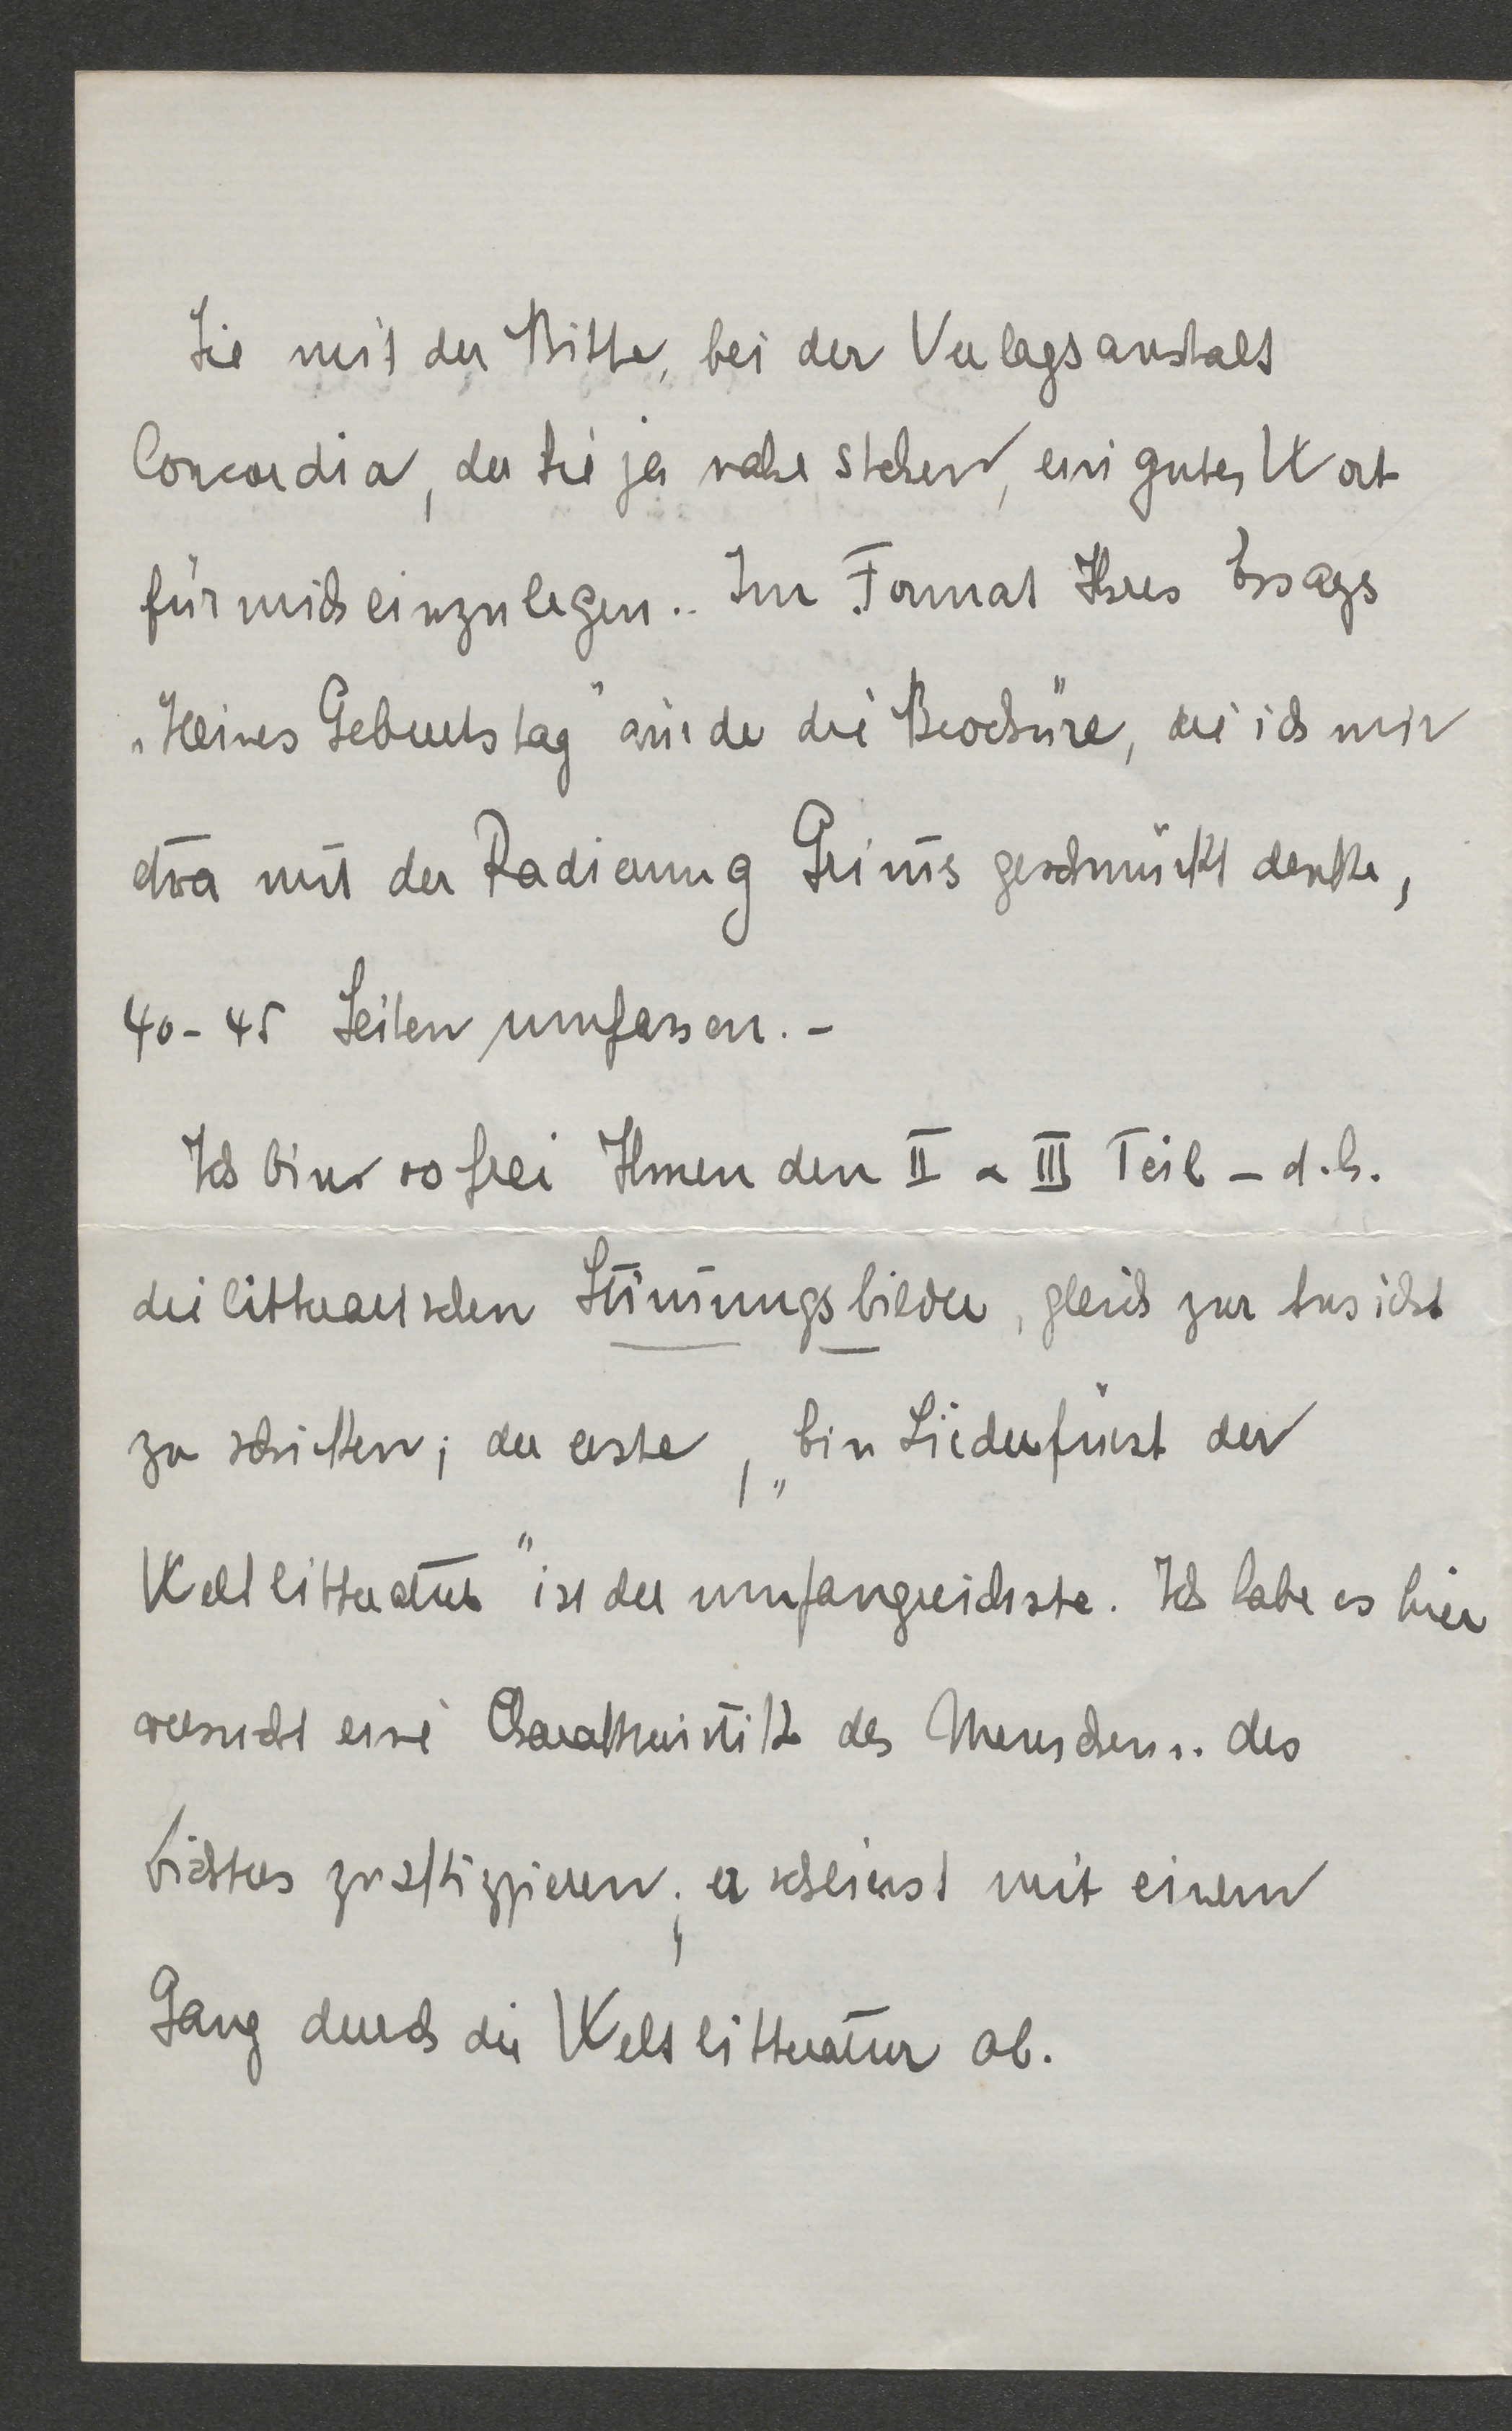 Sie mit der Bitte, bei der Verlagsanstalt
Concordia, der Sie ja nahe stehen, ein gutes Wort
für mich einzulegen.. Im Format Ihres Essays
„Heines Geburtstag" würde die Brochüre, die ich mir
etwa mit der Radierung Grim̄s geschmückt denke,
40-45 Seiten umfassen. -
Ich bin so frei Ihnen den II u III Teil - d. h.
die litterarischen Stim̄ungsbilder, gleich zur Ansicht
zu schicken; der erste, „Ein Liederfürst der
Weltlitteratur" ist der umfangreichste. Ich habe es hier
versucht eine Charakteristik des Menschen u. des
Dichters zu skizzieren; er schließt mit einem
Gang durch die Weltlitteratur ab.